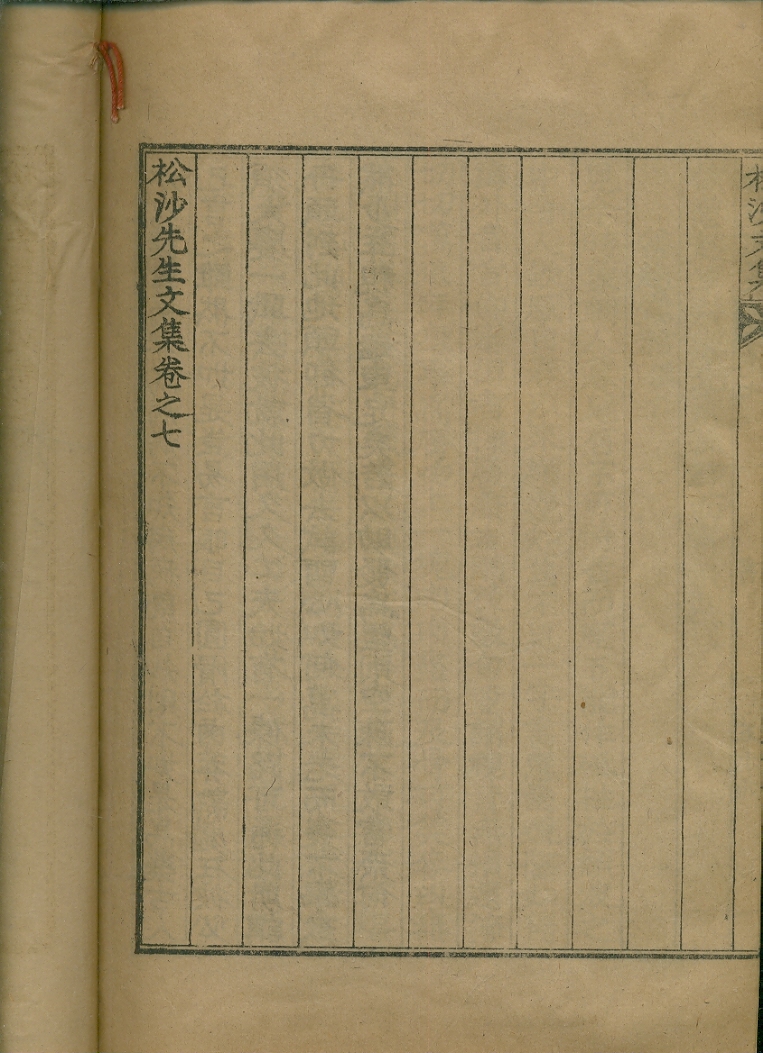 松沙文集
松沙先生文集卷之七